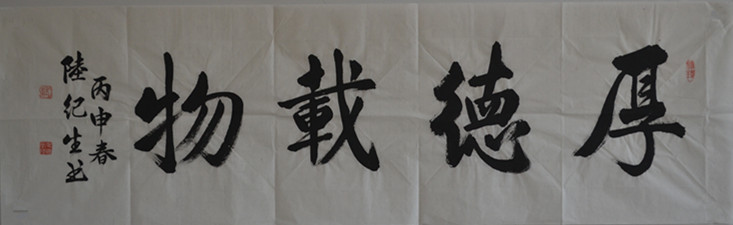 厚德載物
丙申春
陸纪生书